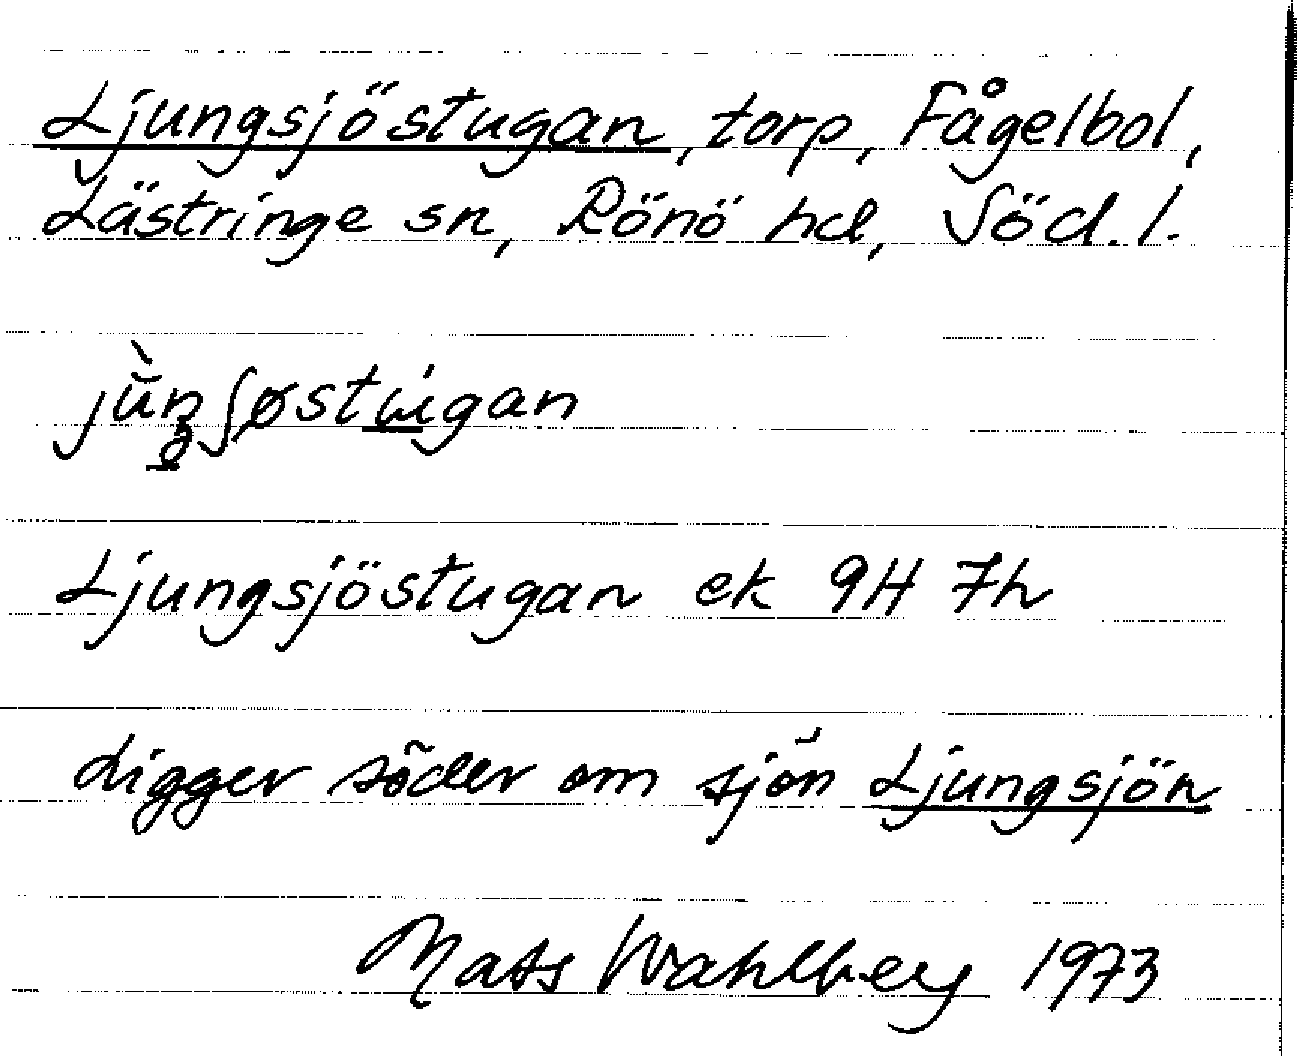 Ljungsjöstugan, torp, Fågelbol,
Lästringe sn, Rönö hd, Söd. l.
Ljungsjöstugan ek 9H 7h
Ligger söder om sjön Ljungsjön
Mats Wahlberg 1973